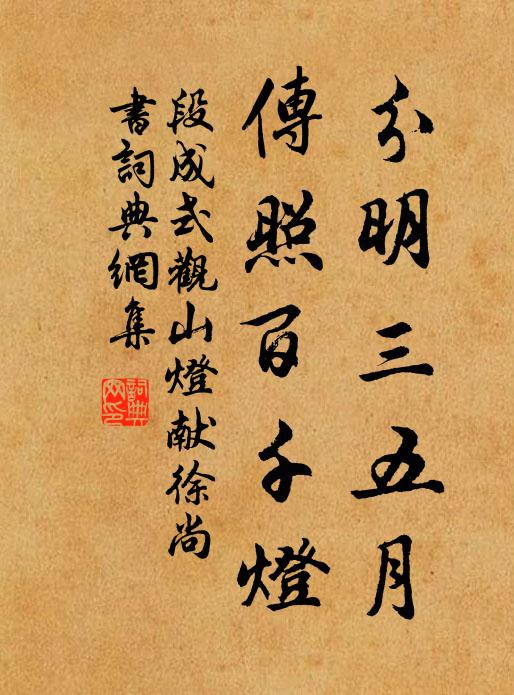 分明三五月
傳照百千燈
段成式觀山燈献徐尚
書詞典網集
詞典
網印